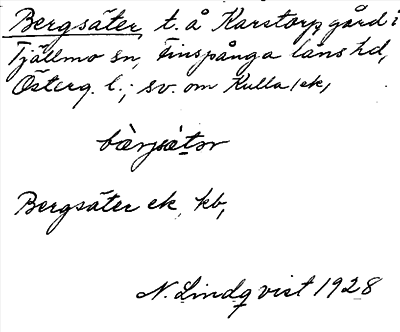 Bergsäter, t. å Karstorps gård i
Tjällmo sn, Finspånga läns hd,
Österg. l.; sv. om Kulla /ek,
bæ̀rjsä̀tər
Bergsäter ek, kb,
N. Lindqvist 1928